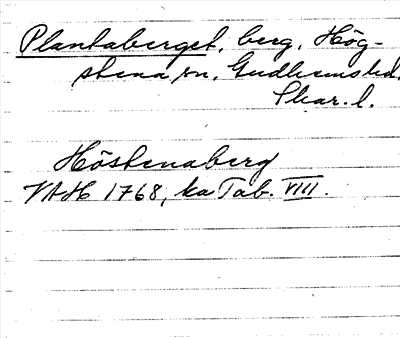 Plantaberget, berg, Hög-
stena sn, Gudhems hd.
Skar. l.
Höstenaberg
VAH 1768, ka Tab. VIII.